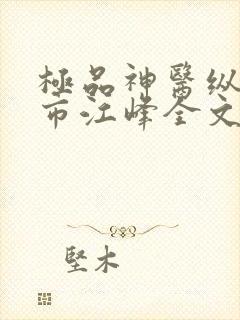 極品神醫纵
市江峰全文
堅木